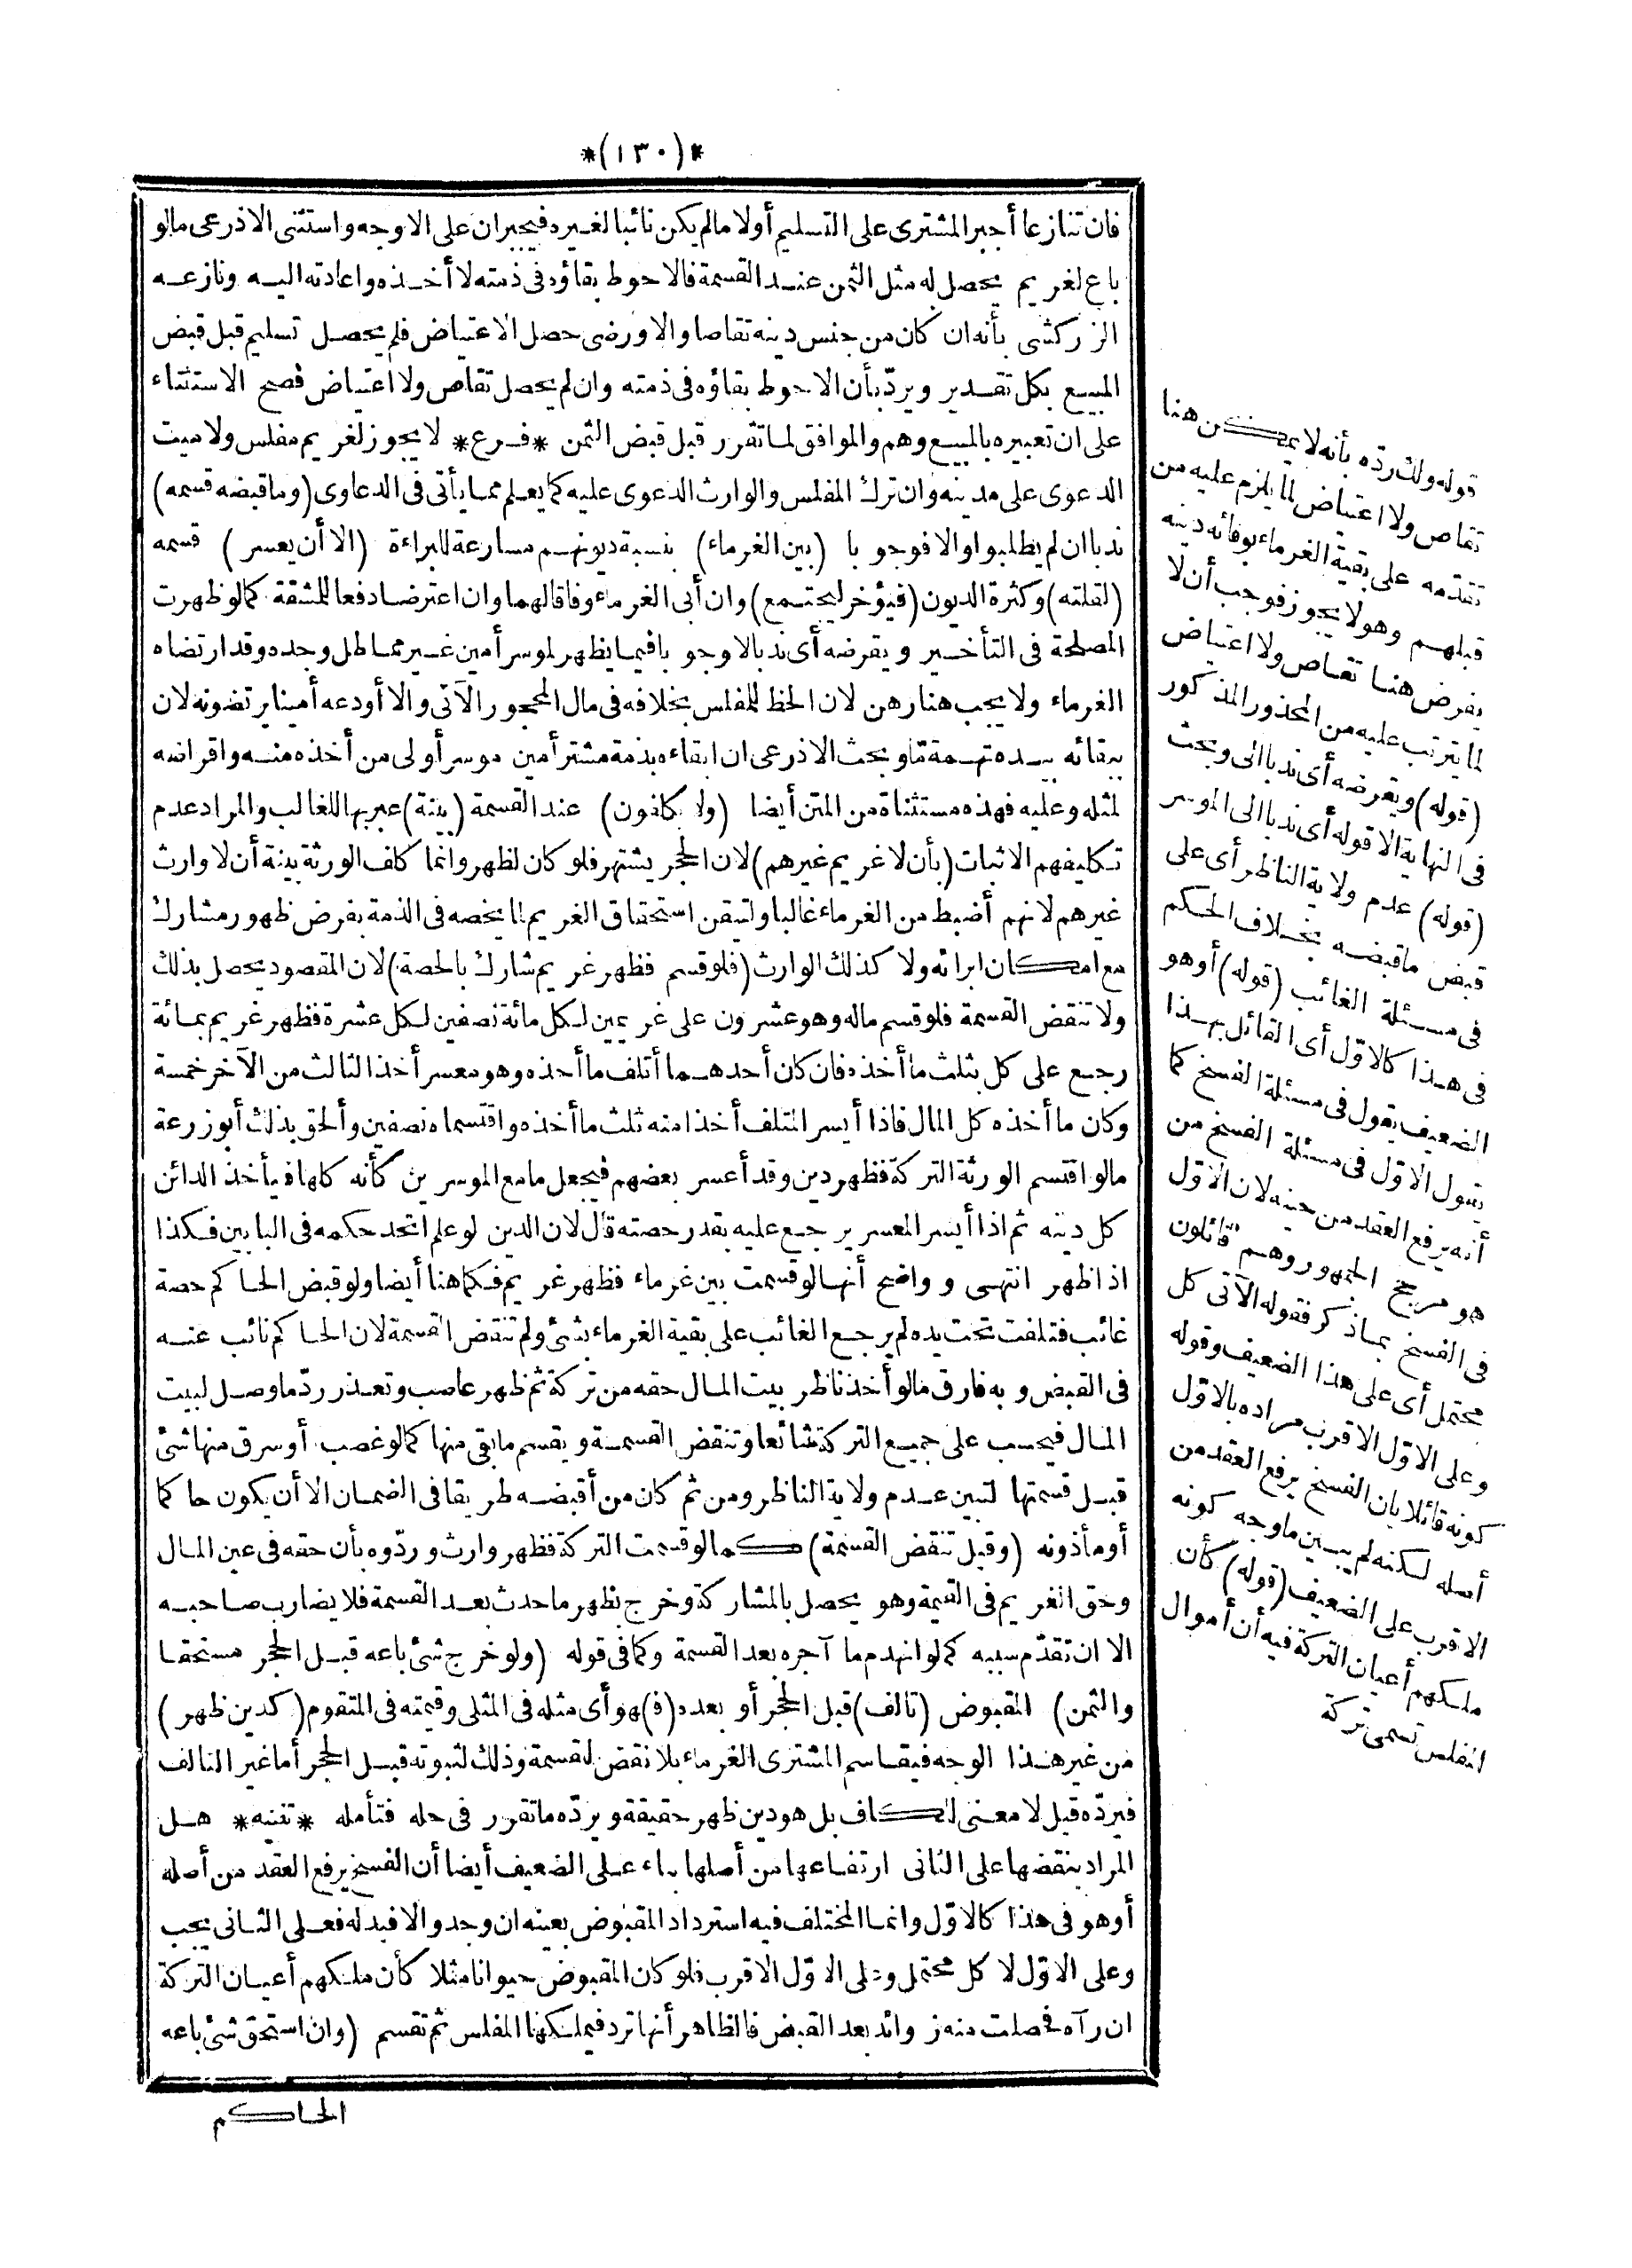 *(١٣٠)*
فان تنازعا أجبر المشترى على التسليم أولا مالم يكن نائبا لغيره فيجبران على الاوجه واستثنى الاذرعى مالو
باع لغريم يحصل له مثل الثمن عند القسمة فالاحوط بقاؤه فى ذمته لا أخذه واعادته اليه ونازعه
الزركشى بأنه ان كان من جنس دينه تقاصا والا ورضى حصل الاعتياض فلم يحصل تسليم قبل قبض
المبيع بكل تقدير ويردّ بأن الاحوط بقاؤه فى ذمته وان لم يحصل تقاص ولا اعتياض فصح الاستثناء
على ان تعبيره بالمبيع وهم والموافق لما تقرر قبل قبض الثمن *فرع* لا يجوز لغريم مفلس ولا ميت
الدعوى على مدينه وان ترك المفلس والوارث الدعوى عليه كما يعلم مما يأتى فى الدعاوى (وما قبضه قسمه)
ندبا ان لم يطلبوا والا فوجوبا (بين الغرماء) بنسبة ديونهم مسارعة للبراءة (الا أن يعسر) قسمه
(لقلته) وكثرة الديون (فيؤخر ليجتمع) وان أبى الغرماء وفاقا لهما وان اعترضا دفعا للمشقة كما لو ظهرت
المصلحة فى التأخير ويقرضه أى ندبا لا وجوبا فيما يظهر لموسر أمين غير مماطل وجده وقد ارتضاه
الغرماء ولا يجب هنا رهن لان الحظ للمفلس بخلافه فى مال المحجور الآتى والا أودعه أمينا يرتضونه لان
ببقائه بيده تهمة مّا وبحث الاذرعى ان ابقاءه بذمة مشتر أمين موسر أولى من أخذه منه واقراضه
لمثله وعليه فهذه مستثناة من المتن أيضا (ولا يكلفون) عند القسمة (بينة) عبر بها للغالب والمراد عدم
تكليفهم الاثبات (بأن لا غريم غيرهم) لان الحجر يشتهر فلو كان لظهر وانما كلف الورثة بينة أن لا وارث
غيرهم لانهم أضبط من الغرماء غالبا ولتيقن استحقاق الغريم لما يخصه فى الذمة بفرض ظهور مشارك
مع امكان ابرائه ولا كذلك الوارث (فلو قسم فظهر غريم شارك بالحصة) لان المقصود يحصل بذلك
ولا تنقض القسمة فلو قسم ماله وهو عشرون على غريمين لكل مائة نصفين لكل عشرة فظهر غريم بمائة
رجع على كل بثلث ما أخذه فان كان أحدهما أتلف ما أخذه وهو معسر أخذ الثالث من الآخر خمسة
وكان ما أخذه كل المال فاذا أيسر المتلف أخذا منه ثلث ما أخذه واقتسماه نصفين وألحق بذلك أبو زرعة
مالو اقتسم الورثة التركة فظهر دين وقد أعسر بعضهم فيجعل ما مع الموسرين كأنه كلها فيأخذ الدائن
كل دينه ثم اذا أيسر المعسر يرجع عليه بقدر حصته قال لان الدين لو علم اتحد حكمه فى البابين فكذا
اذا ظهر انتهى وواضح أنها لو قسمت بين غرماء فظهر غريم فكما هنا أيضا ولو قبض الحاكم حصة
غائب فتلفت تحت يده لم يرجع الغائب على بقية الغرماء بشئ ولم تنقض القسمة لان الحاكم نائب عنه
فى القبض وبه فارق مالو أخذ ناظر بيت المال حقه من تركة ثم ظهر عاصب وتعذر ردّ ما وصل لبيت
المال فيحسب على جميع التركة شائعا وتنقض القسمة ويقسم ما بقى منها كما لو غصب أو سرق منها شئ
قبل قسمتها لتبين عدم ولاية الناظر ومن ثم كان من أقبضه طريقا فى الضمان الا أن يكون حاكما
أو مأذونه (وقيل تنقض القسمة) كما لو قسمت التركة فظهر وارث وردّوه بأن حقه فى عين المال
وحق الغريم فى القيمة وهو يحصل بالمشاركة وخرج بظهر ما حدث بعد القسمة فلا يضارب صاحبه
الا ان تقدّم سببه كما لو انهدم ما آجره بعد القسمة وكما فى قوله (ولو خرج شئ باعه قبل الحجر مستحقا
والثمن) المقبوض (تالف) قبل الحجر أو بعده (ف)هو أى مثله فى المثلى وقيمته فى المتقوم (كدين ظهر)
من غير هذا الوجه فيقاسم المشترى الغرماء بلا نقض للقسمة وذلك لثبوته قبل الحجر أما غير التالف
فيردّه قيل لا معنى للكاف بل هو دين ظهر حقيقة ويردّه ما تقرر فى حله فتأمله *تنبيه* هل
المراد بنقضها على الثانى ارتفاعها من أصلها بناء على الضعيف أيضا أن الفسخ يرفع العقد من أصله
أو هو فى هذا كالاوّل وانما المختلف فيه استرداد المقبوض بعينه ان وجد والا فبدله فعلى الثانى يجب
وعلى الاوّل لا كل محتمل وعلى الاوّل الاقرب فلو كان المقبوض حيوانا مثلا كأن ملكهم أعيان التركة
ان رآه فحصلت منه زوائد بعد القبض فالظاهر أنها ترد فيملكها المفلس ثم تقسم (وان استحق شئ باعه
الحاكم
قوله ولك ردّه بأنه لا يمكن هنا
تقاص ولا اعتياض لما يلزم عليه من
تقدّمه على بقية الغرماء بوفائه دينه
قبلهم وهو لا يجوز فوجب أن لا
يفرض هنا تقاص ولا اعتياض
لما يترتب عليه من المحذور المذكور
(قوله) ويقرضه أى ندبا الى وبحث
فى النهاية الا قوله أى ندبا الى الموسر
(قوله) عدم ولاية الناظر أى على
قبض ما قبضه بخلاف الحكم
فى مسئلة الغائب (قوله) أو هو
فى هذا كالاوّل أى القائل بهذا
الضعيف يقول فى مسئلة الفسخ كما
يقول الاوّل فى مسئلة الفسخ من
أنه يرفع العقد من حينه لان الاوّل
هو مرجح الجمهور وهم قائلون
فى الفسخ بما ذكر فقوله الآتى كل
محتمل أى على هذا الضعيف وقوله
وعلى الاوّل الاقرب مراده بالاوّل
كونه قائلا بان الفسخ يرفع العقد من
أصله لكنه لم يبين ما وجه كونه
الاقرب على الضعيف (قوله) كأن
ملكهم أعيان التركة فيه أن أموال
المفلس تسمى تركة